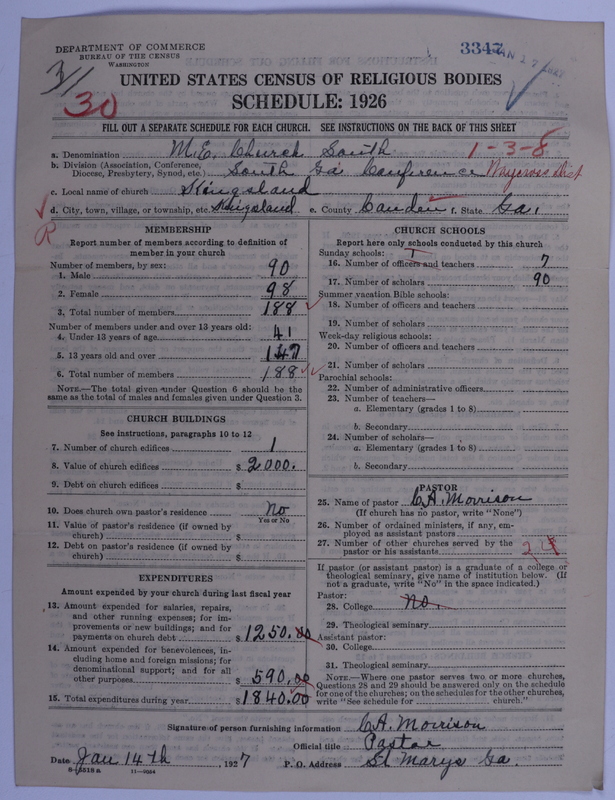 DEPARTMENT OF COMMERCE
BUREAU OF THE CENSUS
WASHINGTON
3347
JAN 17 1927
3/1
30
UNITED STATES CENSUS OF RELIGIOUS BODIES
SCHEDULE: 1926
FILL OUT A SEPARATE SCHEDULE FOR EACH CHURCH. SEE INSTRUCTIONS ON THE BACK OF THIS SHEET
a. Denomination M.E. Church South 1-3-8
b. Division (Association, Conference, Diocese, Presbytery, Synod, etc.) South Ga Conference Waycross Dist
c. Local name of church Kingsland
d. City, town, village, or township, etc. Kingsland e. County Camden f. State Ga.
R
MEMBERSHIP
Report number of members according to definition of
member in your church
Number of members, by sex:
1. Male 90
2. Female 98
3. Total number of members 188
Number of members under and over 13 years old:
4. Under 13 years of age 41
5. 13 years old and over 147
6. Total number of members 188
NOTE.—The total given under Question 6 should be the
same as the total of males and females given under Question 3.
CHURCH BUILDINGS
See instructions, paragraphs 10 to 12
7. Number of church edifices 1
8. Value of church edifices $ 2000.
9. Debt on church edifices $
10. Does church own pastor's residence No
Yes or No
11. Value of pastor's residence (if owned by
church) $
12. Debt on pastor's residence (if owned by
church) $
EXPENDITURES
Amount expended by your church during last fiscal year
13. Amount expended for salaries, repairs,
and other running expenses; for im-
provements or new buildings; and for
payments on church debt $ 1250.00
14. Amount expended for benevolences, in-
cluding home and foreign missions; for
denominational support; and for all
other purposes $ 590.00
15. Total expenditures during year $ 1840.00
CHURCH SCHOOLS
Report here only schools conducted by this church
Sunday schools: 1
16. Number of officers and teachers 7
17. Number of scholars 90
Summer vacation Bible schools:
18. Number of officers and teachers
19. Number of scholars
Week-day religious schools:
20. Number of officers and teachers
21. Number of scholars
Parochial schools:
22. Number of administrative officers
23. Number of teachers—
a. Elementary (grades 1 to 8)
b. Secondary
24. Number of scholars—
a. Elementary (grades 1 to 8)
b. Secondary
PASTOR
25. Name of pastor C.A. Morrison
(If church has no pastor, write "None")
26. Number of ordained ministers, if any, em-
ployed as assistant pastors
27. Number of other churches served by the
pastor or his assistants
If pastor (or assistant pastor) is a graduate of a college or
theological seminary, give name of institution below. (If
not a graduate, write "No" in the space indicated.)
Pastor:
28. College No.
29. Theological seminary
Assistant pastor:
30. College
31. Theological seminary
NOTE.—Where one pastor serves two or more churches,
Questions 28 and 29 should be answered only on the schedule
for one of the churches; on the schedules for the other churches,
write "See schedule for church."
Signature of person furnishing information C.A. Morrison
Official title Pastor
Date Jan 14th, 1927 P. O. Address St Marys Ga.
8-5518a 11-9084